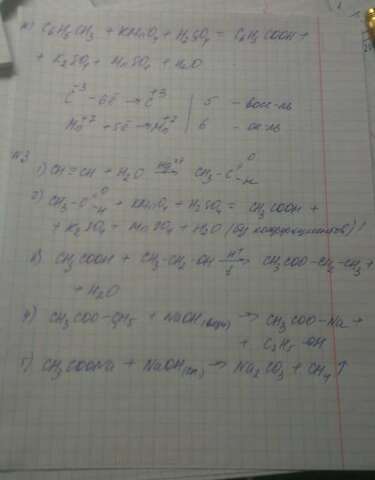 к) C₆H₅CH₃ + KMnO₄ + H₂SO₄ = C₆H₅COOH +
+ K₂SO₄ + MnSO₄ + H₂O
C⁻³ - 6ē → C⁺³ | 5 - восс-ль
Mn⁺⁷ + 5ē → Mn⁺² | 6 - ок-ль
№3
1) CH≡CH + H₂O Hg²⁺→ CH₃-C=O-H
2) CH₃-C=O-H + KMnO₄ + H₂SO₄ = CH₃COOH +
+ K₂SO₄ + MnSO₄ + H₂O (без коэффициентов)!
3) CH₃COOH + CH₃-CH₂-OH H⁺, t→ CH₃COO-CH₂-CH₃ +
+ H₂O
4) CH₃COO-C₂H₅ + NaOH → CH₃COO-Na +
+ C₂H₅-OH
5) CH₃COONa + NaOH → Na₂CO₃ + CH₄↑